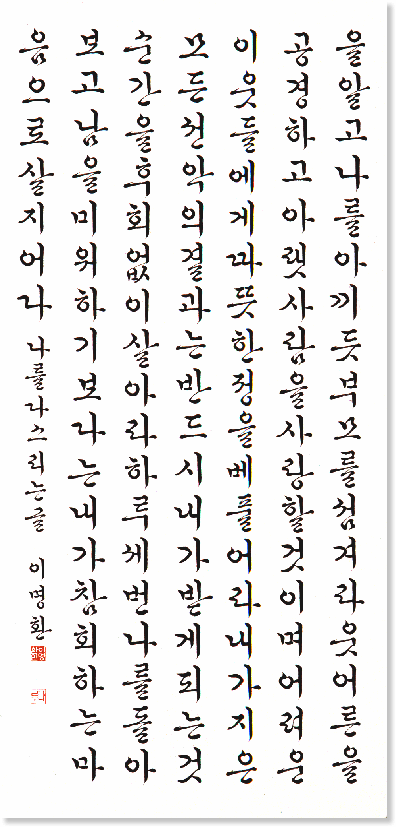 을알고나를아끼듯부모를섬겨라웃어른을
공경하고아랫사람을사랑할것이며어려운
이웃들에게따뜻한정을베풀어라내가지은
모든선악의결과는반드시내가받게되는것
순간을후회없이살아라하루세번나를돌아
보고남을미워하기보다는내가참회하는마
음으로살지어다 나를다스리는글 이명환